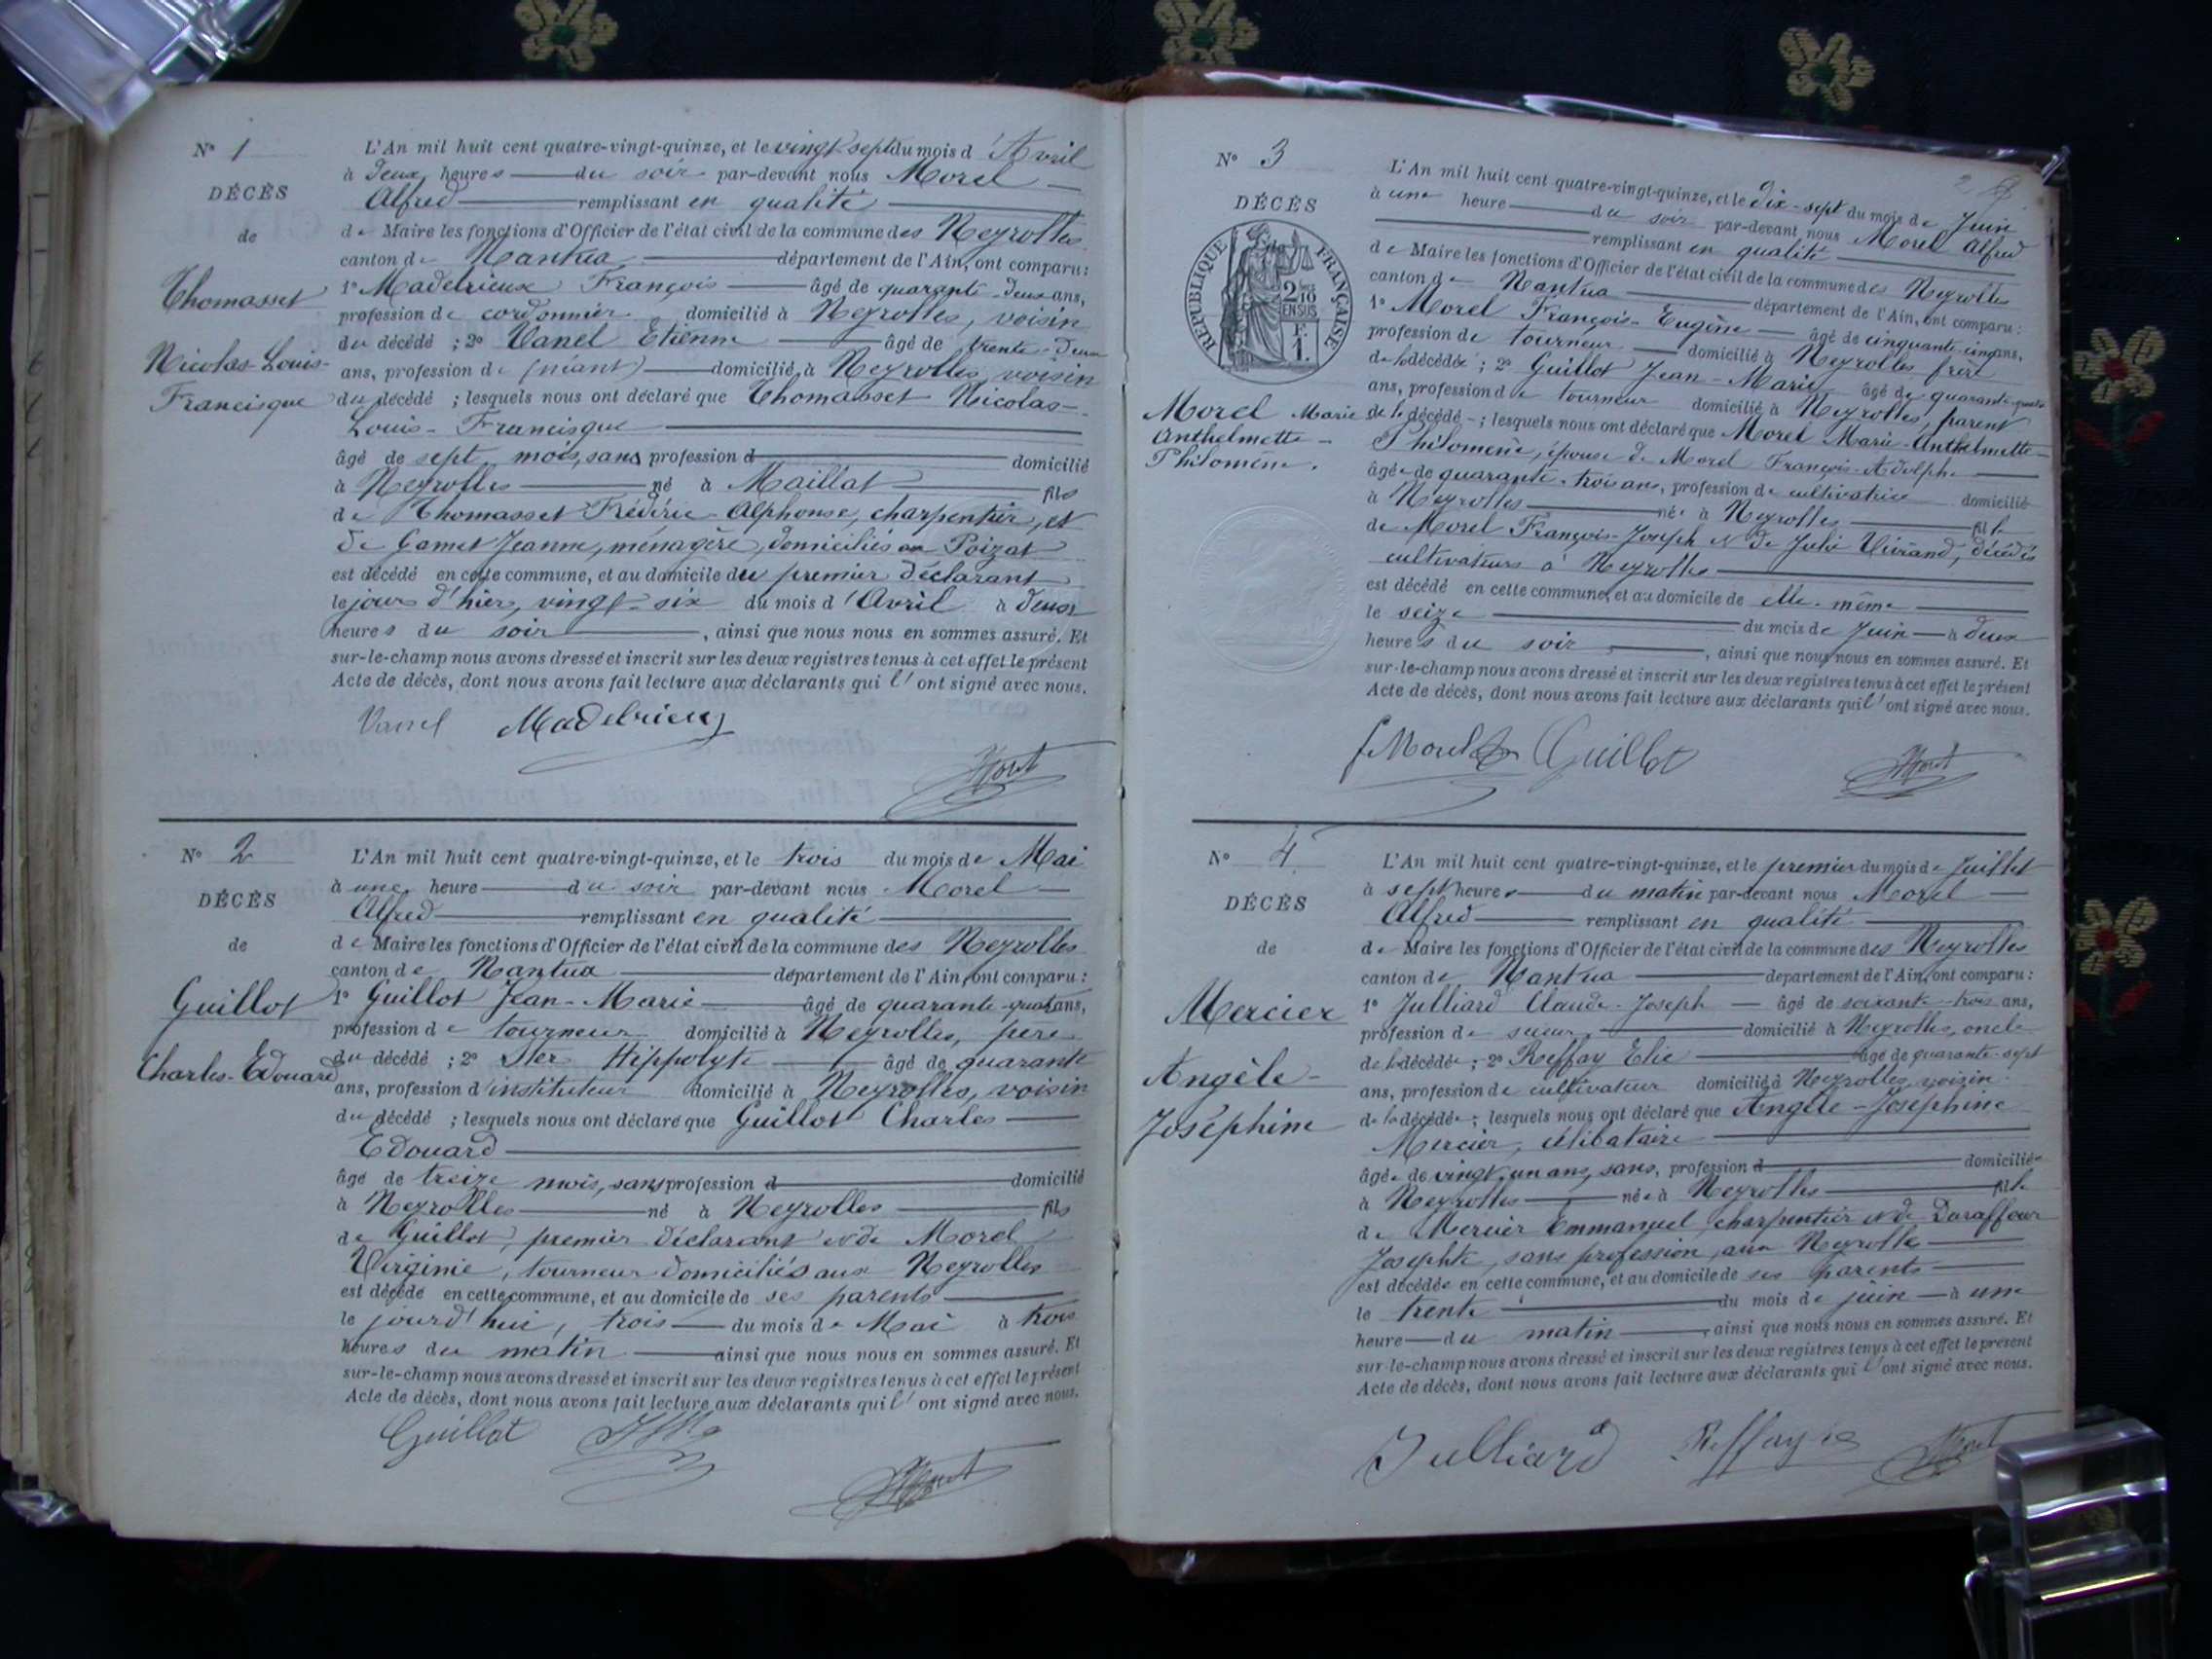 N° 1
DÉCÈS
de
Thomasset
Nicolas-Louis-
Francisque
L'An mil huit cent quatre-vingt-quinze, et le vingt-sept du mois d'Avril
à deux heures du soir par-devant nous Morel
Alfred remplissant en qualité
de Maire les fonctions d'Officier de l'état civil de la commune des Neyrolles
canton de Nantua département de l'Ain, ont comparu :
1° Madebrieux François âgé de quarante-deux ans,
profession de cordonnier domicilié à Neyrolles, voisin
du décédé ; 2° Vanel Etienne âgé de trente-deux
ans, profession de (néant) domicilié à Neyrolles, voisin
du décédé ; lesquels nous ont déclaré que Thomasset Nicolas-
Louis-Francisque
âgé de sept mois, sans profession d domicilié
à Neyrolles né à Maillat fils
de Thomasset Frédéric-Alphonse, charpentier, et
de Gamet Jeanne, ménagère, domiciliés au Poizat
est décédé en cette commune, et au domicile du premier déclarant
le jour d'hier, vingt-six du mois d'Avril à deux
heures du soir, ainsi que nous nous en sommes assuré. Et
sur-le-champ nous avons dressé et inscrit sur les deux registres tenus à cet effet le présent
Acte de décès, dont nous avons fait lecture aux déclarants qui l'ont signé avec nous.
Vanel Madebrieux
Morel
N° 2
DÉCÈS
de
Guillot
Charles-Edouard
L'An mil huit cent quatre-vingt-quinze, et le trois du mois de Mai
à une heure du soir par-devant nous Morel
Alfred remplissant en qualité
de Maire les fonctions d'Officier de l'état civil de la commune des Neyrolles
canton de Nantua département de l'Ain, ont comparu :
1° Guillot Jean-Marie âgé de quarante-quatre ans,
profession de tourneur domicilié à Neyrolles, père
du décédé ; 2° Hippolyte âgé de quarante
ans, profession d'instituteur domicilié à Neyrolles, voisin
du décédé ; lesquels nous ont déclaré que Guillot Charles
Edouard
âgé de treize mois, sans profession d domicilié
à Neyrolles né à Neyrolles fils
de Guillot, premier déclarant et de Morel
Virginie, tourneur domiciliés aux Neyrolles
est décédé en cette commune, et au domicile de ses parents
le jourd'hui, trois du mois de Mai à trois
heures du matin ainsi que nous nous en sommes assuré. Et
sur-le-champ nous avons dressé et inscrit sur les deux registres tenus à cet effet le présent
Acte de décès, dont nous avons fait lecture aux déclarants qui l'ont signé avec nous.
Guillot
Morel
N° 3
DÉCÈS
RÉPUBLIQUE FRANÇAISE
2/10 EN SUS
F. 1.
Morel Marie
Anthelmette-
Philomène.
L'An mil huit cent quatre-vingt-quinze, et le dix-sept du mois de Juin
à une heure du soir par-devant nous Morel Alfred
remplissant en qualité
de Maire les fonctions d'Officier de l'état civil de la commune des Neyrolles
canton de Nantua département de l'Ain, ont comparu :
1° Morel François-Eugène âgé de cinquante-cinq ans,
profession de tourneur domicilié à Neyrolles, frère
de la décédée ; 2° Guillot Jean-Marie âgé de quarante-quatre
ans, profession de tourneur domicilié à Neyrolles, parent
de la décédé ; lesquels nous ont déclaré que Morel Marie-Anthelmette-
Philomène, épouse de Morel François-Adolphe
âgée de quarante-trois ans, profession de cultivatrice domicilié
à Neyrolles née à Neyrolles fille
de Morel François-Joseph et de Julie Vivrand, décédés
cultivateurs à Neyrolles
est décédé en cette commune, et au domicile de elle-même
le seize du mois de Juin à deux
heures du soir, ainsi que nous nous en sommes assuré. Et
sur-le-champ nous avons dressé et inscrit sur les deux registres tenus à cet effet le présent
Acte de décès, dont nous avons fait lecture aux déclarants qui l'ont signé avec nous.
f Morel Guillot
Morel
N° 4
DÉCÈS
de
Mercier
Angèle-
Joséphine
L'An mil huit cent quatre-vingt-quinze, et le premier du mois de Juillet
à sept heures du matin par-devant nous Morel
Alfred remplissant en qualité
de Maire les fonctions d'Officier de l'état civil de la commune des Neyrolles
canton de Nantua département de l'Ain, ont comparu :
1° Julliard Claude-Joseph âgé de soixante-trois ans,
profession de domicilié à Neyrolles, oncle
de la décédée ; 2° Reffay Elie âgé de quarante-sept
ans, profession de cultivateur domicilié à Neyrolles, voisin
de la décédée ; lesquels nous ont déclaré que Angèle-Joséphine
Mercier, célibataire
âgée de vingt-un ans, sans, profession d domiciliée
à Neyrolles née à Neyrolles fille
de Mercier Emmanuel, charpentier et de Daraffour
Josephte, sans profession, aux Neyrolles
est décédée en cette commune, et au domicile de ses parents
le trente du mois de juin à une
heure du matin, ainsi que nous nous en sommes assuré. Et
sur-le-champ nous avons dressé et inscrit sur les deux registres tenus à cet effet le présent
Acte de décès, dont nous avons fait lecture aux déclarants qui l'ont signé avec nous.
Julliard Reffay Morel